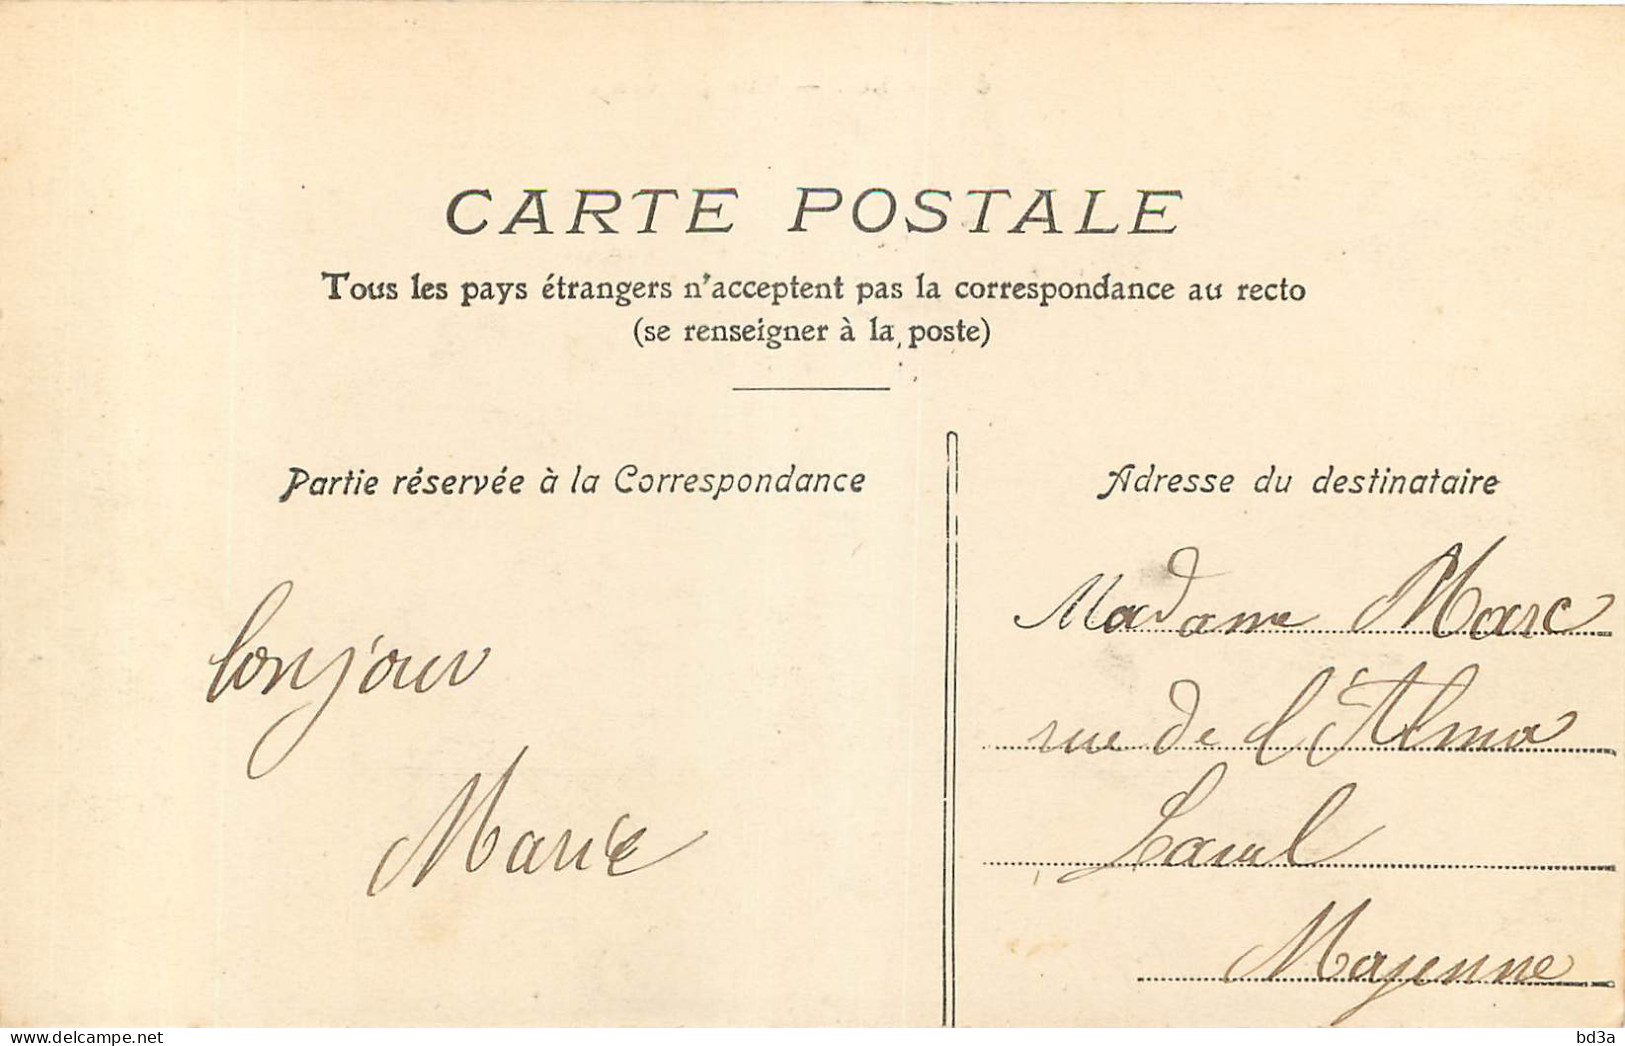 CARTE POSTALE
Tous les pays étrangers n'acceptent pas la correspondance au recto
(se renseigner à la poste)
Partie réservée à la Correspondance
bonjour
Marie
Adresse du destinataire
Madame Marc
rue de l'Alma
Laval
Mayenne
www.delcampe.net
bd3a